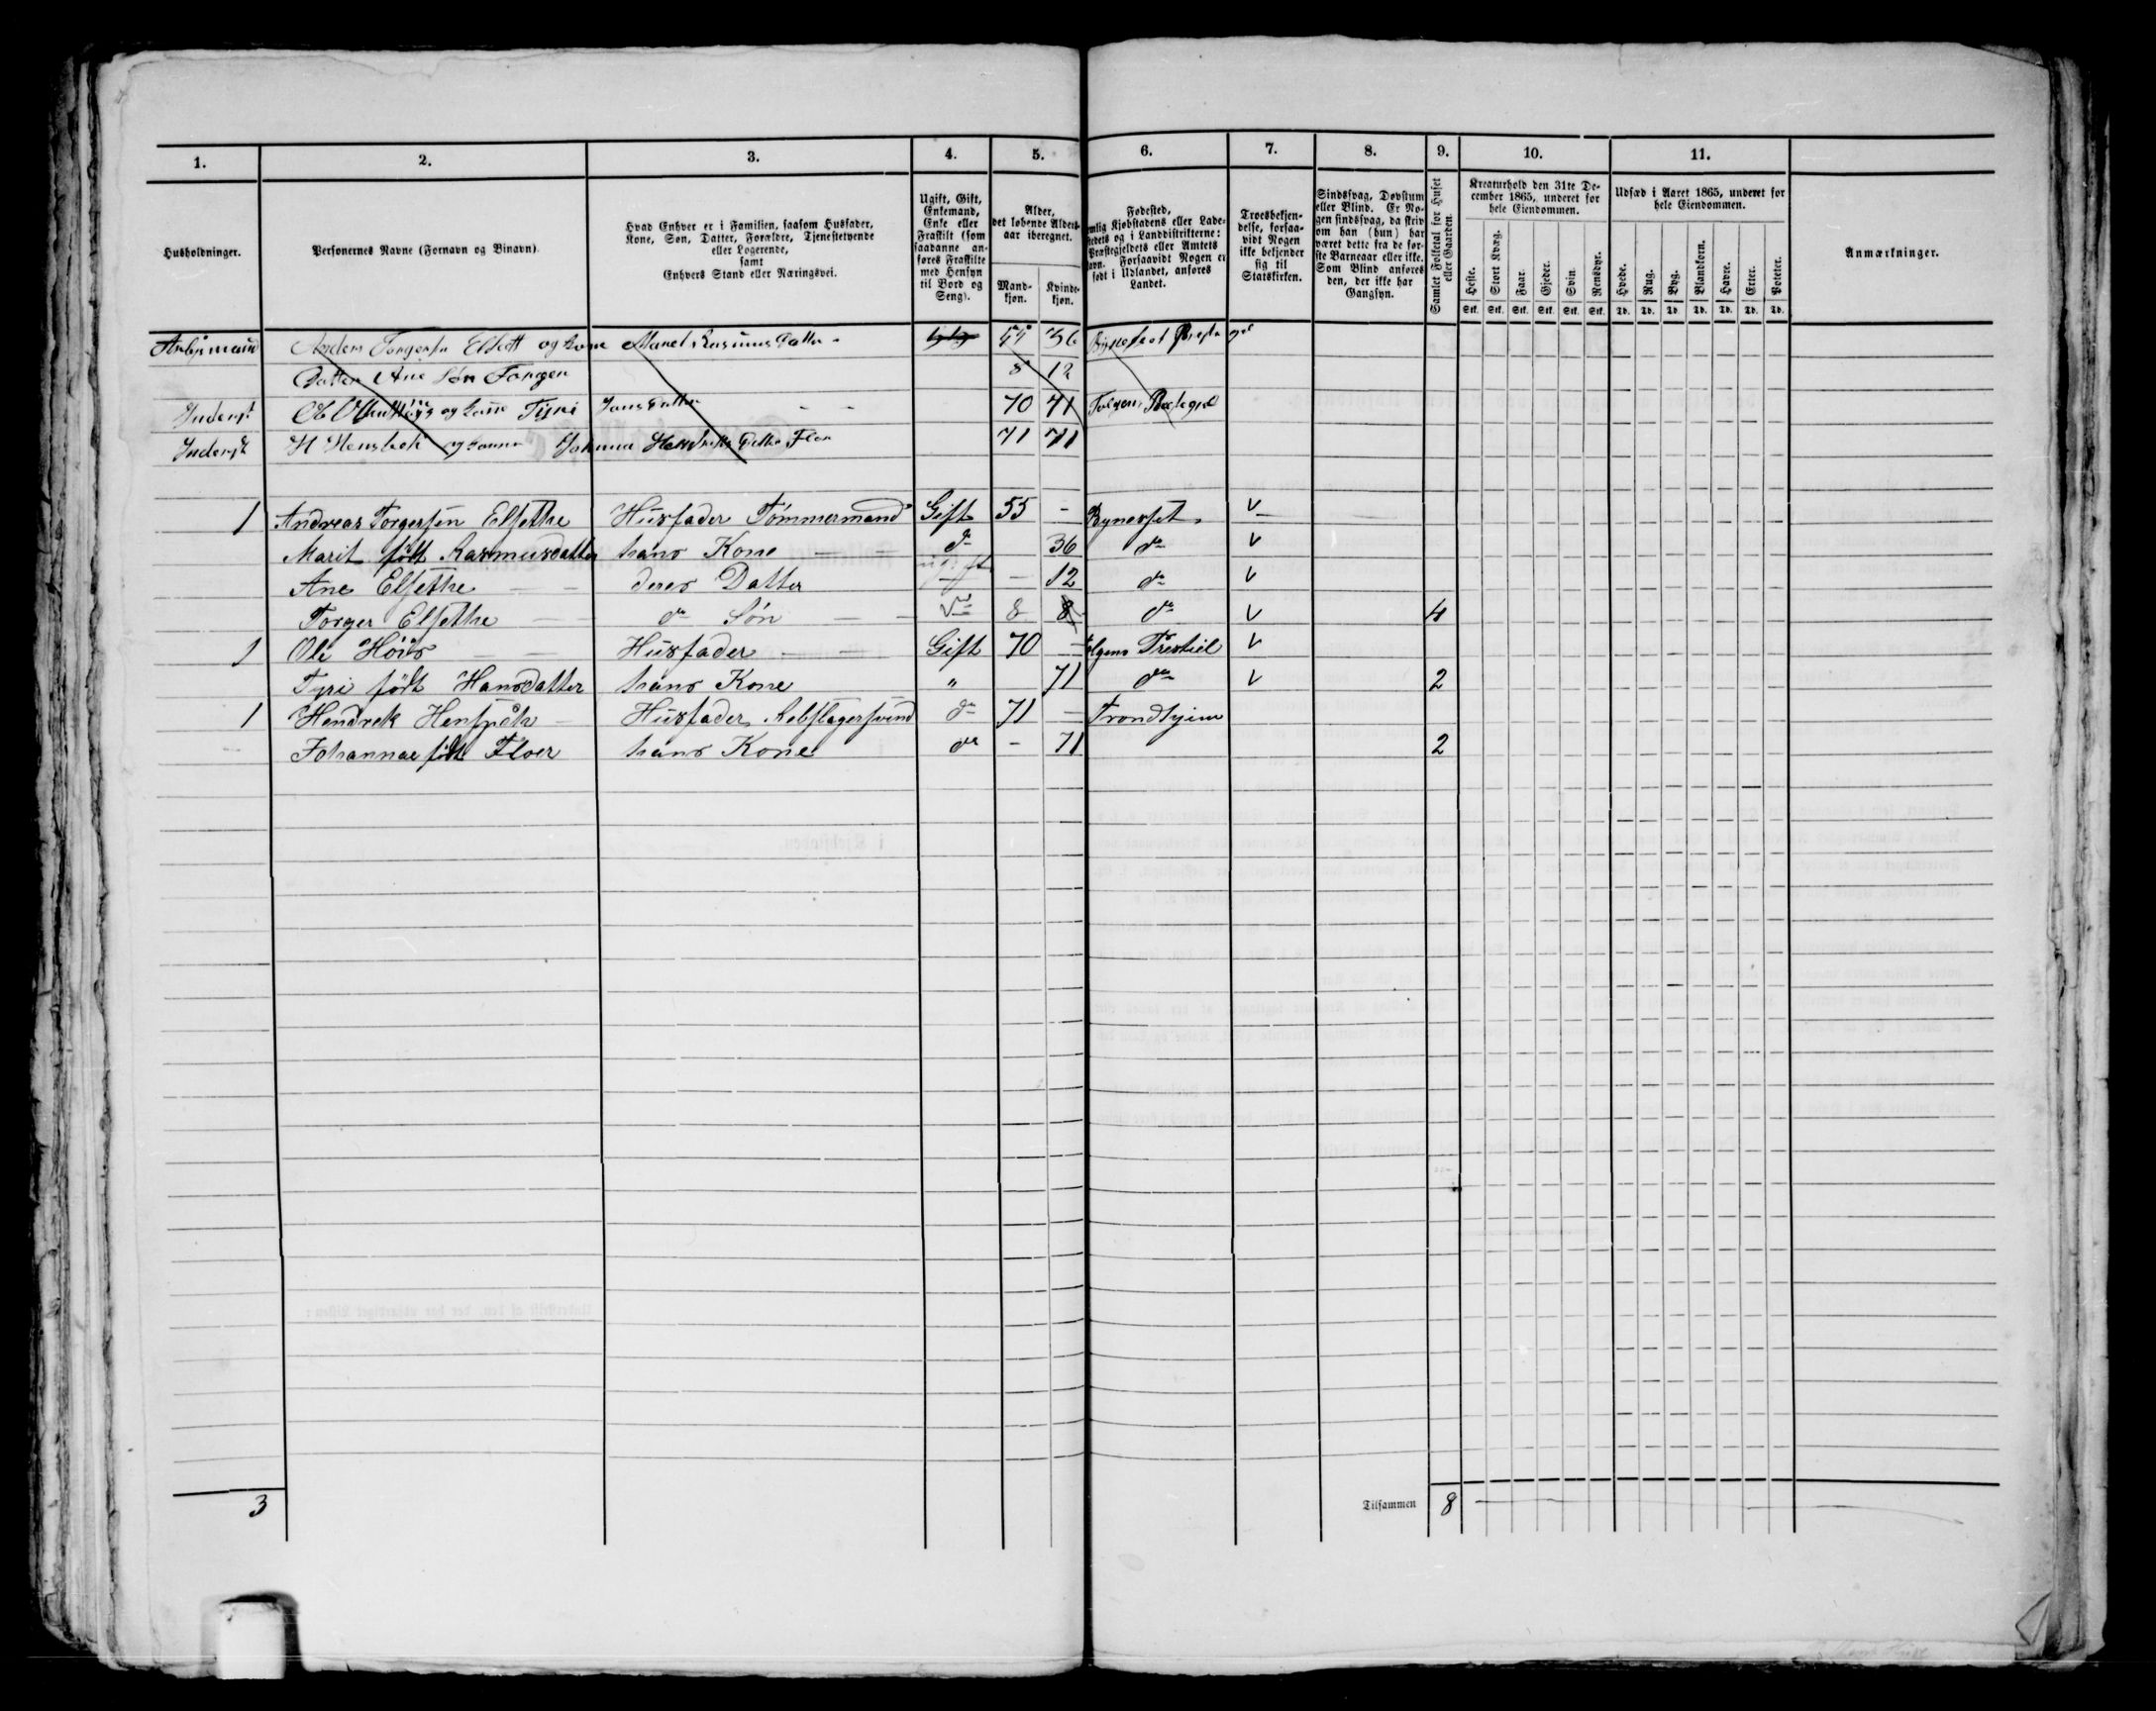 1. 2. 3. 4. 5. 6. 7. 8. 9. 10. 11.
Husholdninger.
Personernes Navne (Fornavn og Binavn).
Hvad Enhver er i Familien, saasom Husfader, Kone, Søn, Datter, Forældre, Tjenestetyende eller Logerende, samt Enhvers Stand eller Næringsvei.
Ugift, Gift, Enkemand, Enke eller Fraskilt (som saadanne anføres Fraskilte med Hensyn til Bord og Seng).
Alder, det løbende Aldersaar iberegnet.
Mandkjøn. Kvindekjøn.
Fødested, mlig Kjøbstadens eller Ladestedets og i Landdistrikterne: Præstegjeldets eller Amtets Navn. Forsaavidt Nogen er født i Udlandet, anføres Landet.
Troesbekjendelse, forsaavidt Nogen ikke bekjender sig til Statskirken.
Sindssvag, Døvstum eller Blind. Er Nogen sindssvag, da skriv om han (hun) har været dette fra de første Barneaar eller ikke. Som Blind anføres den, der ikke har Gangsyn.
Samlet Folketal for Huset eller Gaarden.
Kreaturhold den 31te December 1865, underet for hele Eiendommen.
Heste. Stort Kvæg. Faar. Gjeder. Svin. Rensdyr.
Stk. Stk. Stk. Stk. Stk. Stk.
Udsæd i Aaret 1865, underet for hele Eiendommen.
Hvede. Rug. Byg. Blandkorn. Havre. Erter. Poteter.
Td. Td. Td. Td. Td. Td. Td.
Anmærkninger.
Anders Torgersen og Kone Maret Rasmus Datter 36
Datter Ane Søn Torger 8 12
Inderst og Kone Tyri 70 71
Inderst H og Kone Johanna 71 71
1 Andreas Torgersen Elsethe Husfader Tømmermand Gift 55 - Bynesset V
Marit født Rasmusdatter hans Kone do 36 do V
Ane Elsethe deres Datter ugift - 12 do V
Torger Elsethe do Søn 8 8 do V 4
1 Ole Høis Husfader Gift 70 - V
Tyri født Hansdatter hans Kone " 71 do V 2
1 Hendrek Husfader Rebslagersvend do 71 - Trondhjem
Johannae født Floer hans Kone do - 71 2
3 Tilsammen 8